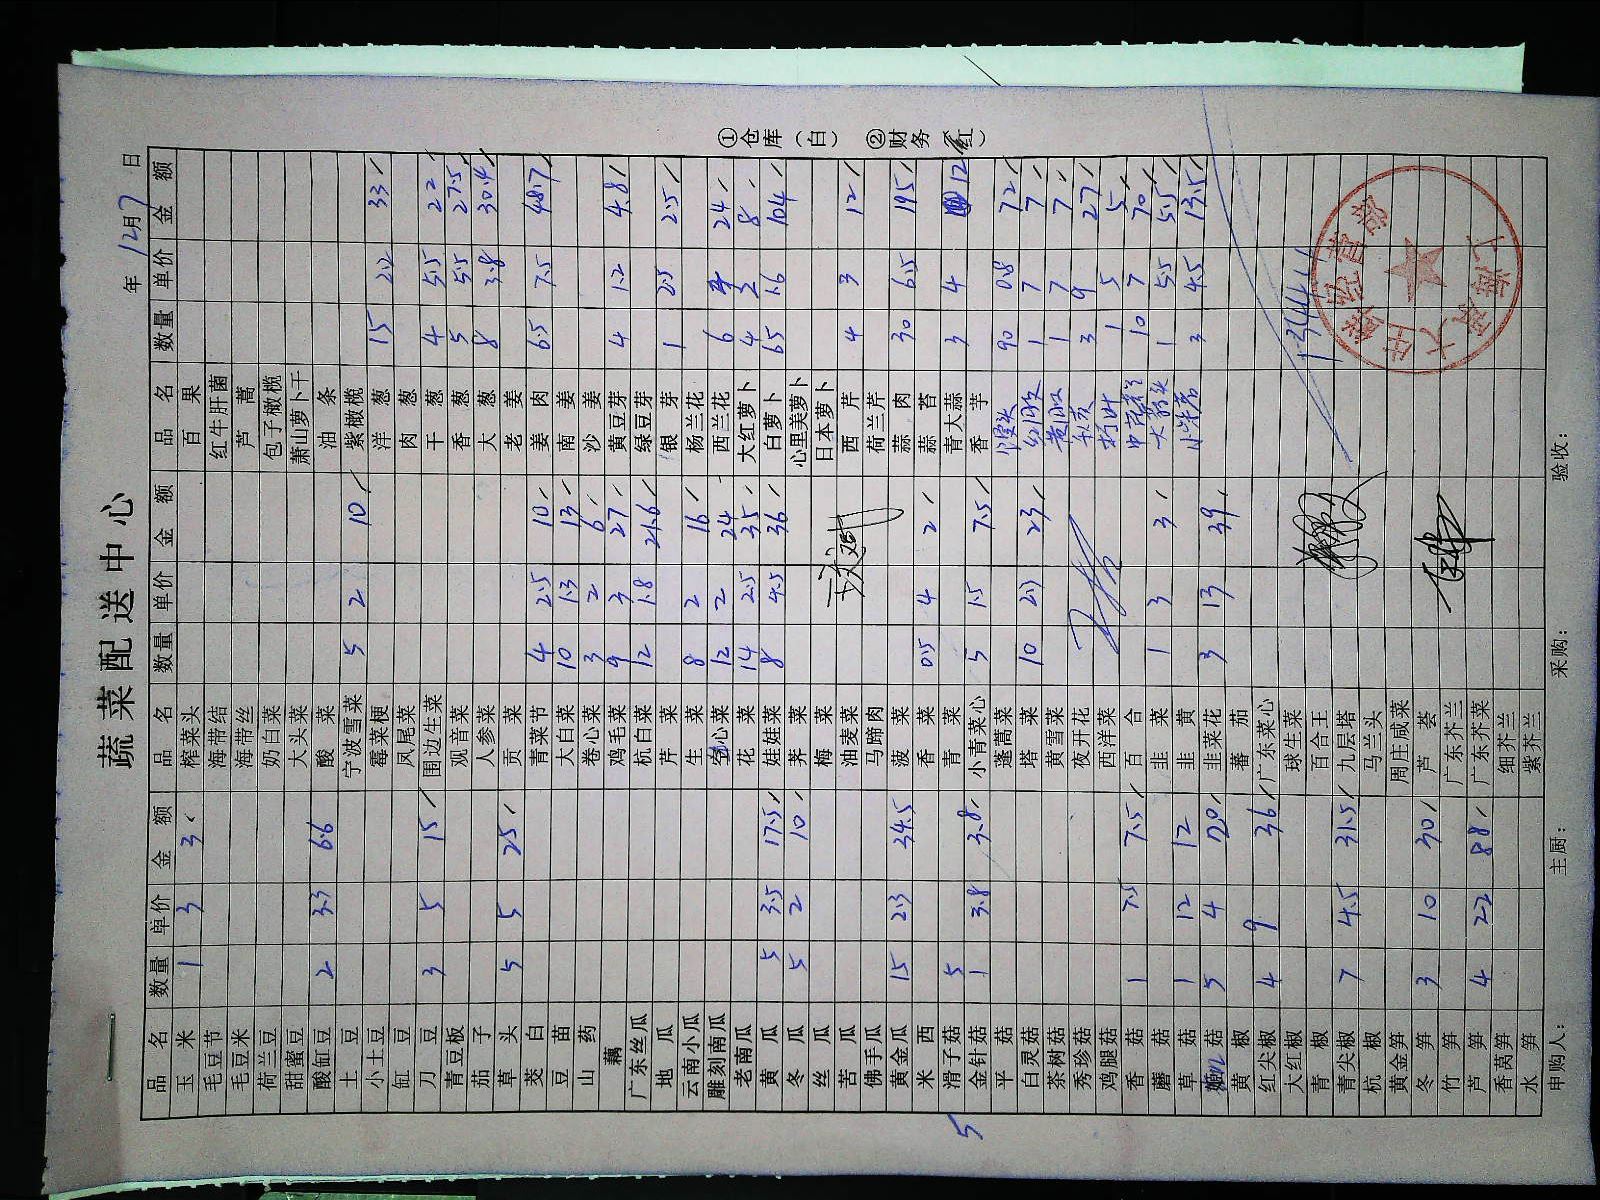 蔬菜配送中心
年 12月7日
品名 数量 单价 金额 品名 数量 单价 金额 品名 数量 单价 金额
玉米 1 3 3 榨菜头 百果
毛豆节 海带结 红牛肝菌
毛豆米 海带丝 芦蒿
荷兰豆 奶白菜 包子橄榄
甜蜜豆 大头菜 萧山萝卜干
酸缸豆 2 3.3 6.6 酸菜 油条
土豆 宁波雪菜 5 2 10 紫橄榄
小土豆 霉菜梗 洋葱 15 2.2 33
缸豆 凤尾菜 肉葱
刀豆 3 5 15 围边生菜 干葱 4 5.5 22
青豆板 观音菜 香葱 5 5.5 27.5
茄子 人参菜 大葱 8 3.8 30.4
草头 5 5 25 贡菜 老姜
茭白 青菜节 4 2.5 10 姜肉 6.5 7.5 48.7
豆苗 大白菜 10 1.3 13 南姜
山药 卷心菜 3 2 6 沙姜
藕 鸡毛菜 9 3 27 黄豆芽 4 1.2 4.8
广东丝瓜 杭白菜 12 1.8 21.6 绿豆芽
地瓜 芹菜 银芽 1 2.5 2.5
云南小瓜 生菜 8 2 16 杨兰花
雕刻南瓜 空心菜 12 2 24 西兰花 6 4 24
老南瓜 花菜 14 2.5 35 大红萝卜 4 2 8
黄瓜 5 3.5 17.5 娃娃菜 8 4.5 36 白萝卜 65 1.6 104
冬瓜 5 2 10 荠菜 心里美萝卜
丝瓜 梅菜 日本萝卜
苦瓜 油麦菜 西芹 4 3 12
佛手瓜 马蹄肉 荷兰芹
黄金瓜 15 2.3 34.5 菠菜 蒜肉 30 6.5 195
米西 香菜 0.5 4 2 蒜苔
5 滑子菇 5 青菜 青大蒜 3 4 12
金针菇 1 3.8 3.8 小青菜心 5 1.5 7.5 香芋
平菇 蓬蒿菜 90 0.8 72
白灵菇 塔菜 10 2.3 23 1 7 7
茶树菇 黄雪菜 1 7 7
秀珍菇 夜开花 3 9 27
鸡腿菇 西洋菜 1 5 5
香菇 1 7.5 7.5 百合 10 7 70
蘑菇 韭菜 1 3 3 1 5.5 5.5
草菇 1 12 12 韭黄 3 4.5 13.5
菇 5 4 20 韭菜花 3 13 39
黄椒 蕃茄
红尖椒 4 9 36 广东菜心
大红椒 球生菜
青椒 百合王
青尖椒 7 4.5 31.5 九层塔
杭椒 马兰头
黄金笋 周庄咸菜
冬笋 3 10 30 芦荟
竹笋 广东芥兰
芦笋 4 22 88 广东芥菜
香莴笋 细芥兰
水笋 紫芥兰
申购人： 主厨： 采购： 验收：
①仓库（白） ②财务（红）